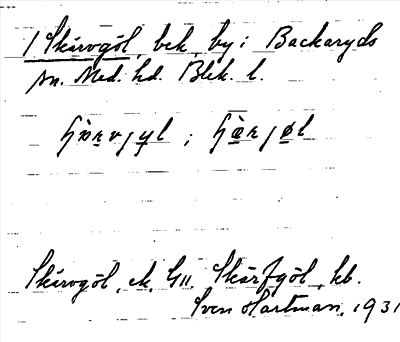 1 Skärvgöl, bek, by i Backaryds
sn. Med. hd. Blek. l.
Skärvgöl, ek. G11. Skärfgöl, kb.
Sven Hartman, 1931